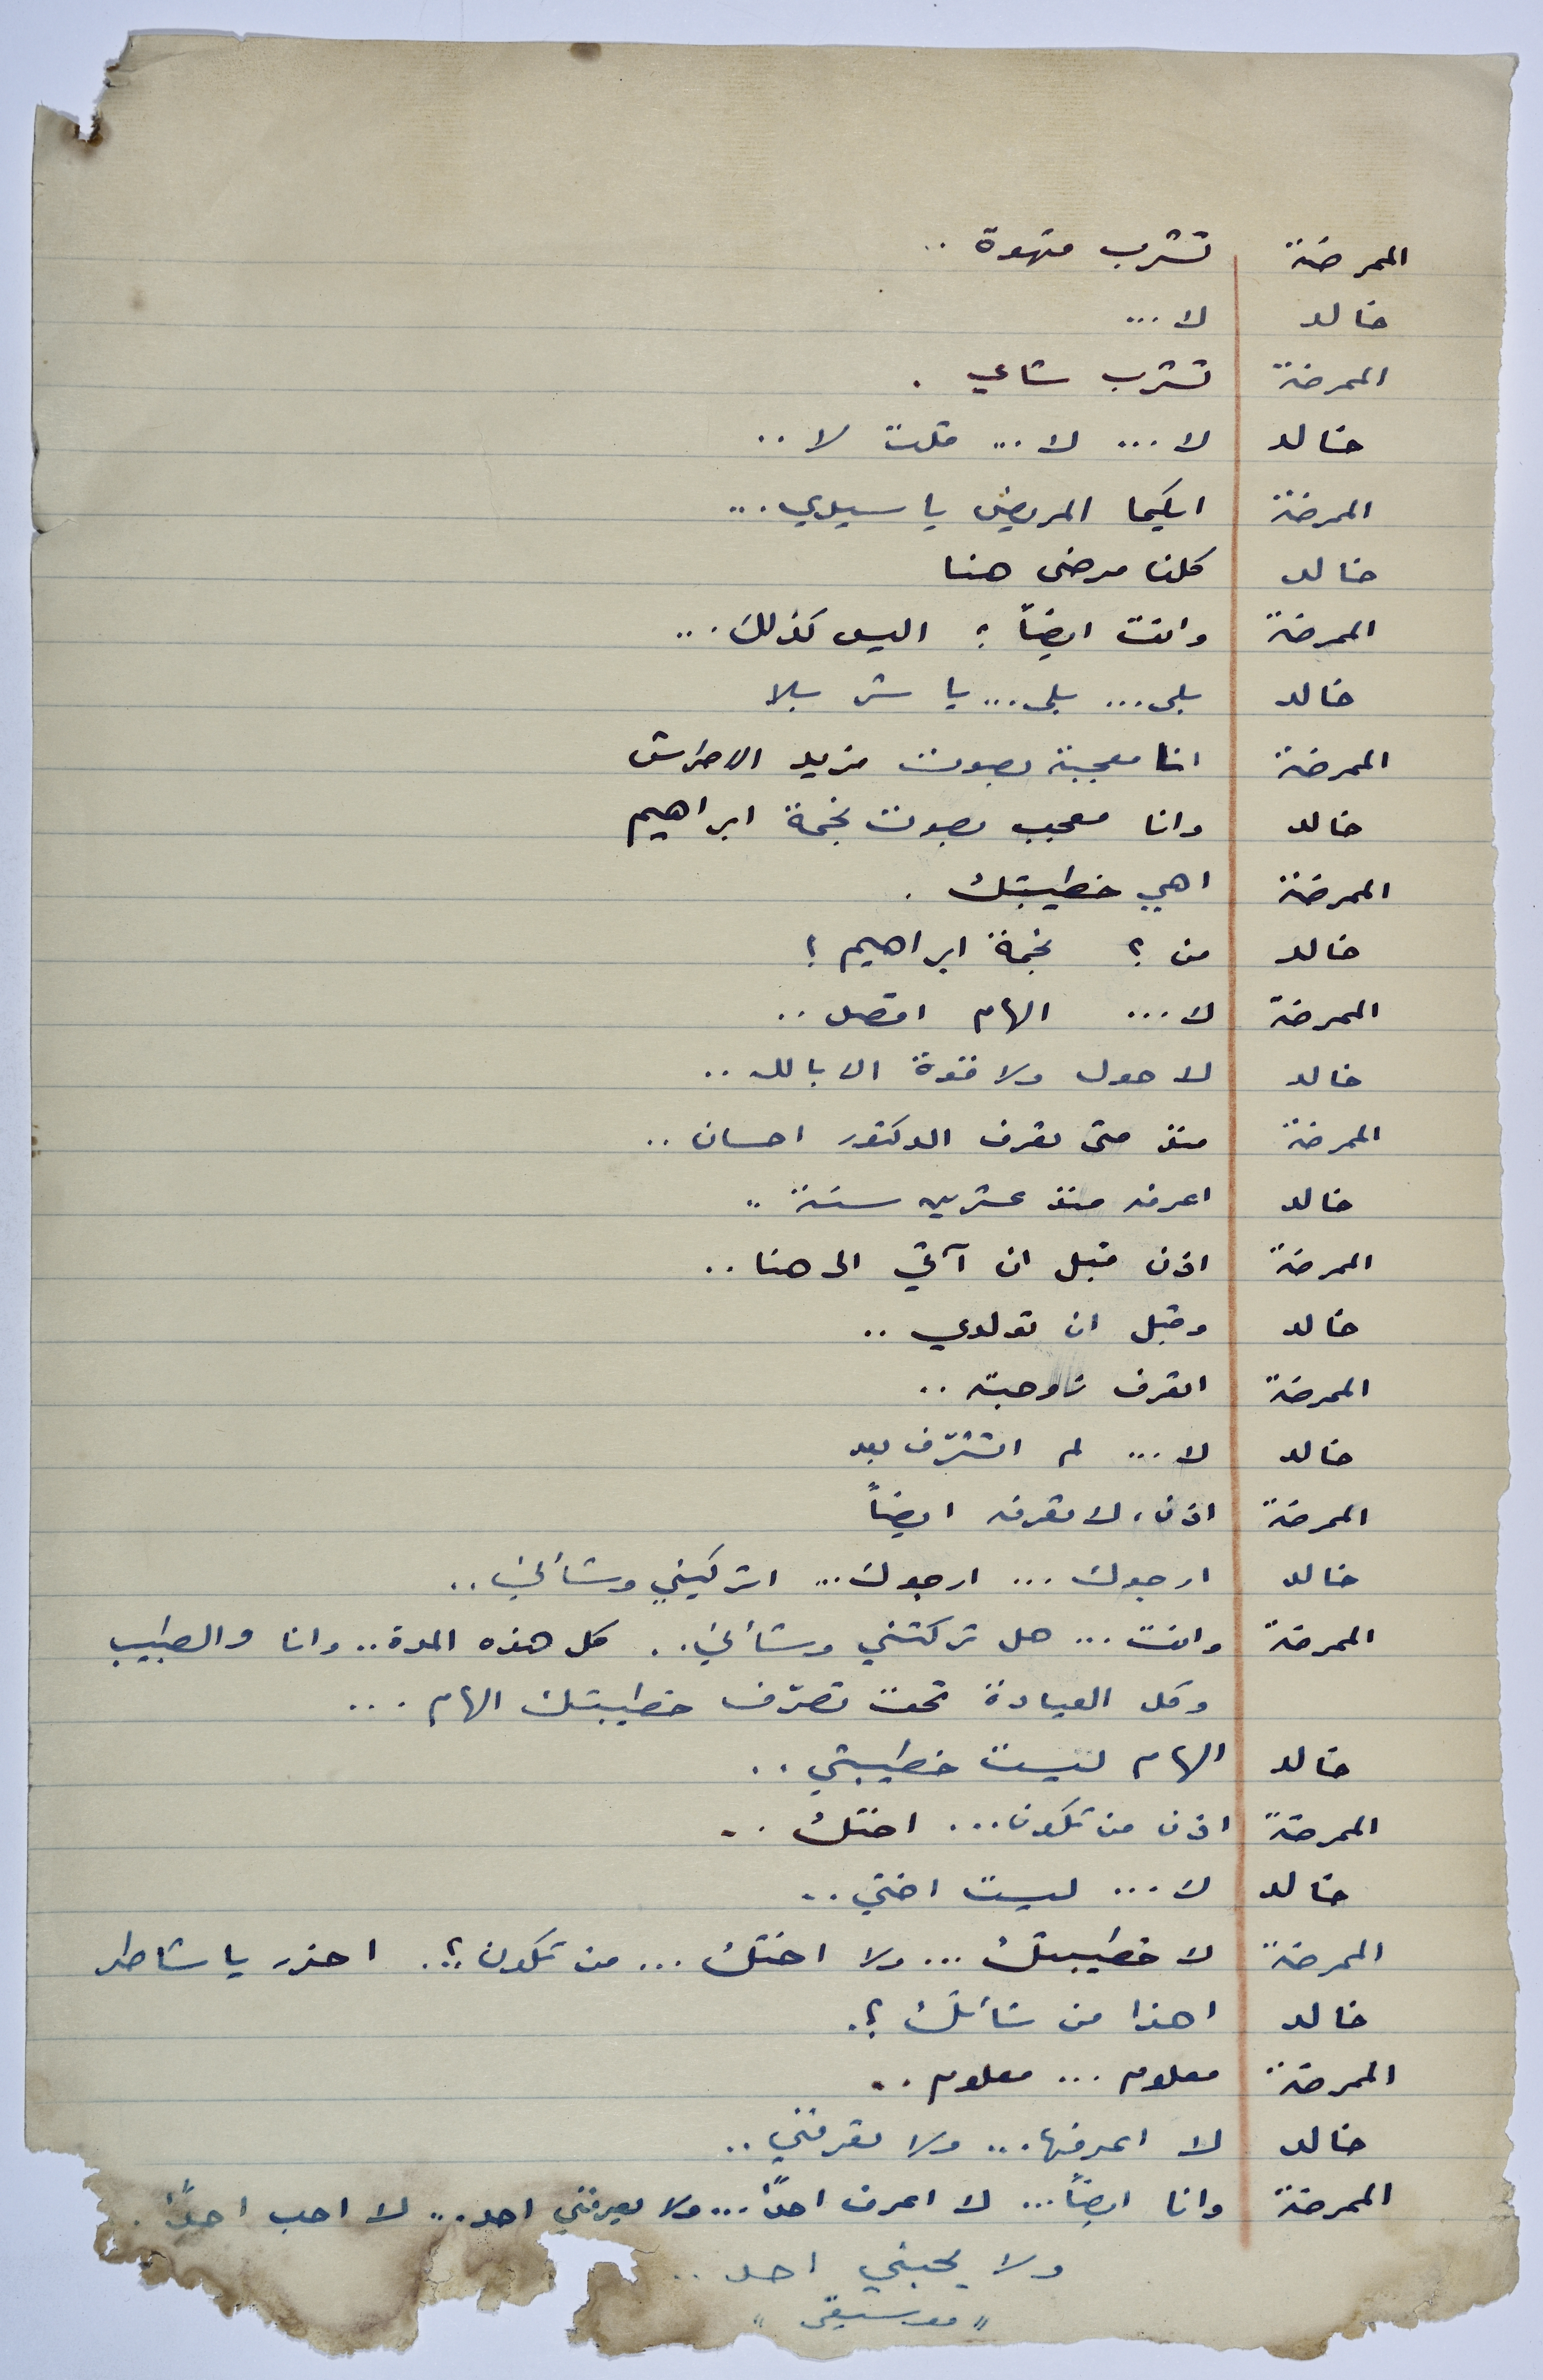 الممرضة تشرب قهوة ..
خالد لا ...
الممرضة تشرب شاي .
خالد لا ... لا ... قلت لا ..
الممرضة ايكما المريض يا سيدي ...
خالد كلنا مرضى هنا
الممرضة وانت ايضاً ؟ اليس كذلك ...
خالد بلى ... بلى ... يا ست بلا
الممرضة انا معجبة بصوت فريد الاطرش
خالد وانا معجب بصوت نجمة ابراهيم
الممرضة اهي خطيبتك .
خالد من ؟ نجمة ابراهيم ؟
الممرضة لا ... الهام اقصد ..
خالد لا حول ولا قوة الا بالله ..
الممرضة منذ متى تعرف الدكتور احسان ..
خالد اعرفه منذ عشرين سنة ..
الممرضة اذن قبل ان آتي الى هنا ..
خالد وقبل ان تولدي ..
الممرضة اتعرف زوجته ..
خالد لا ... لم اتشرّف بعد
الممرضة اذن، لا تعرفه ايضاً
خالد ارجوك ... ارجوك ... اتركيني وشأني ..
الممرضة وانت ... هل تركتني وشأني .. كل هذه المدة .. وانا والطبيب
وكل العيادة تحت تصرّف خطيبتك الهام ...
خالد الهام ليست خطيبتي ..
الممرضة اذن من تكون ... اختك ..
خالد لا ... ليست اختي ..
الممرضة لا خطيبتك ... ولا اختك ... من تكون ؟.. احزر يا شاطر
خالد اهذا من شأنك ؟.
الممرضة معلوم ... معلوم ..
خالد لا اعرفها ... ولا تعرفني ..
الممرضة وانا ايضاً ... لا اعرف احداً ... ولا يعرفني احد .. لا احب احداً .
ولا يحبني احد ..
" موسيقى "